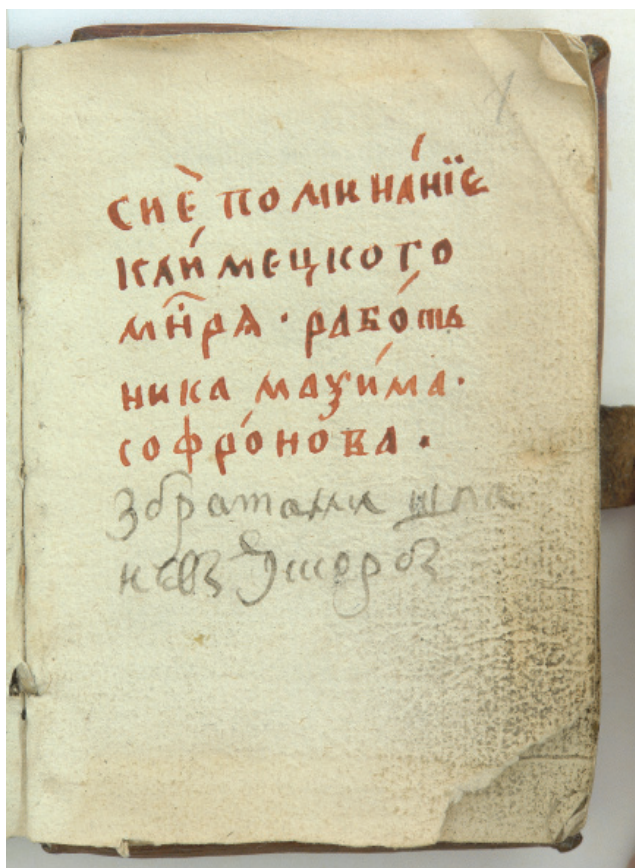 сиѐ помина́нїе
кли́мецкого
мн҃ря · рабо́тъ
ника маѯи́ма ·
софро́но́ва ·
збратами